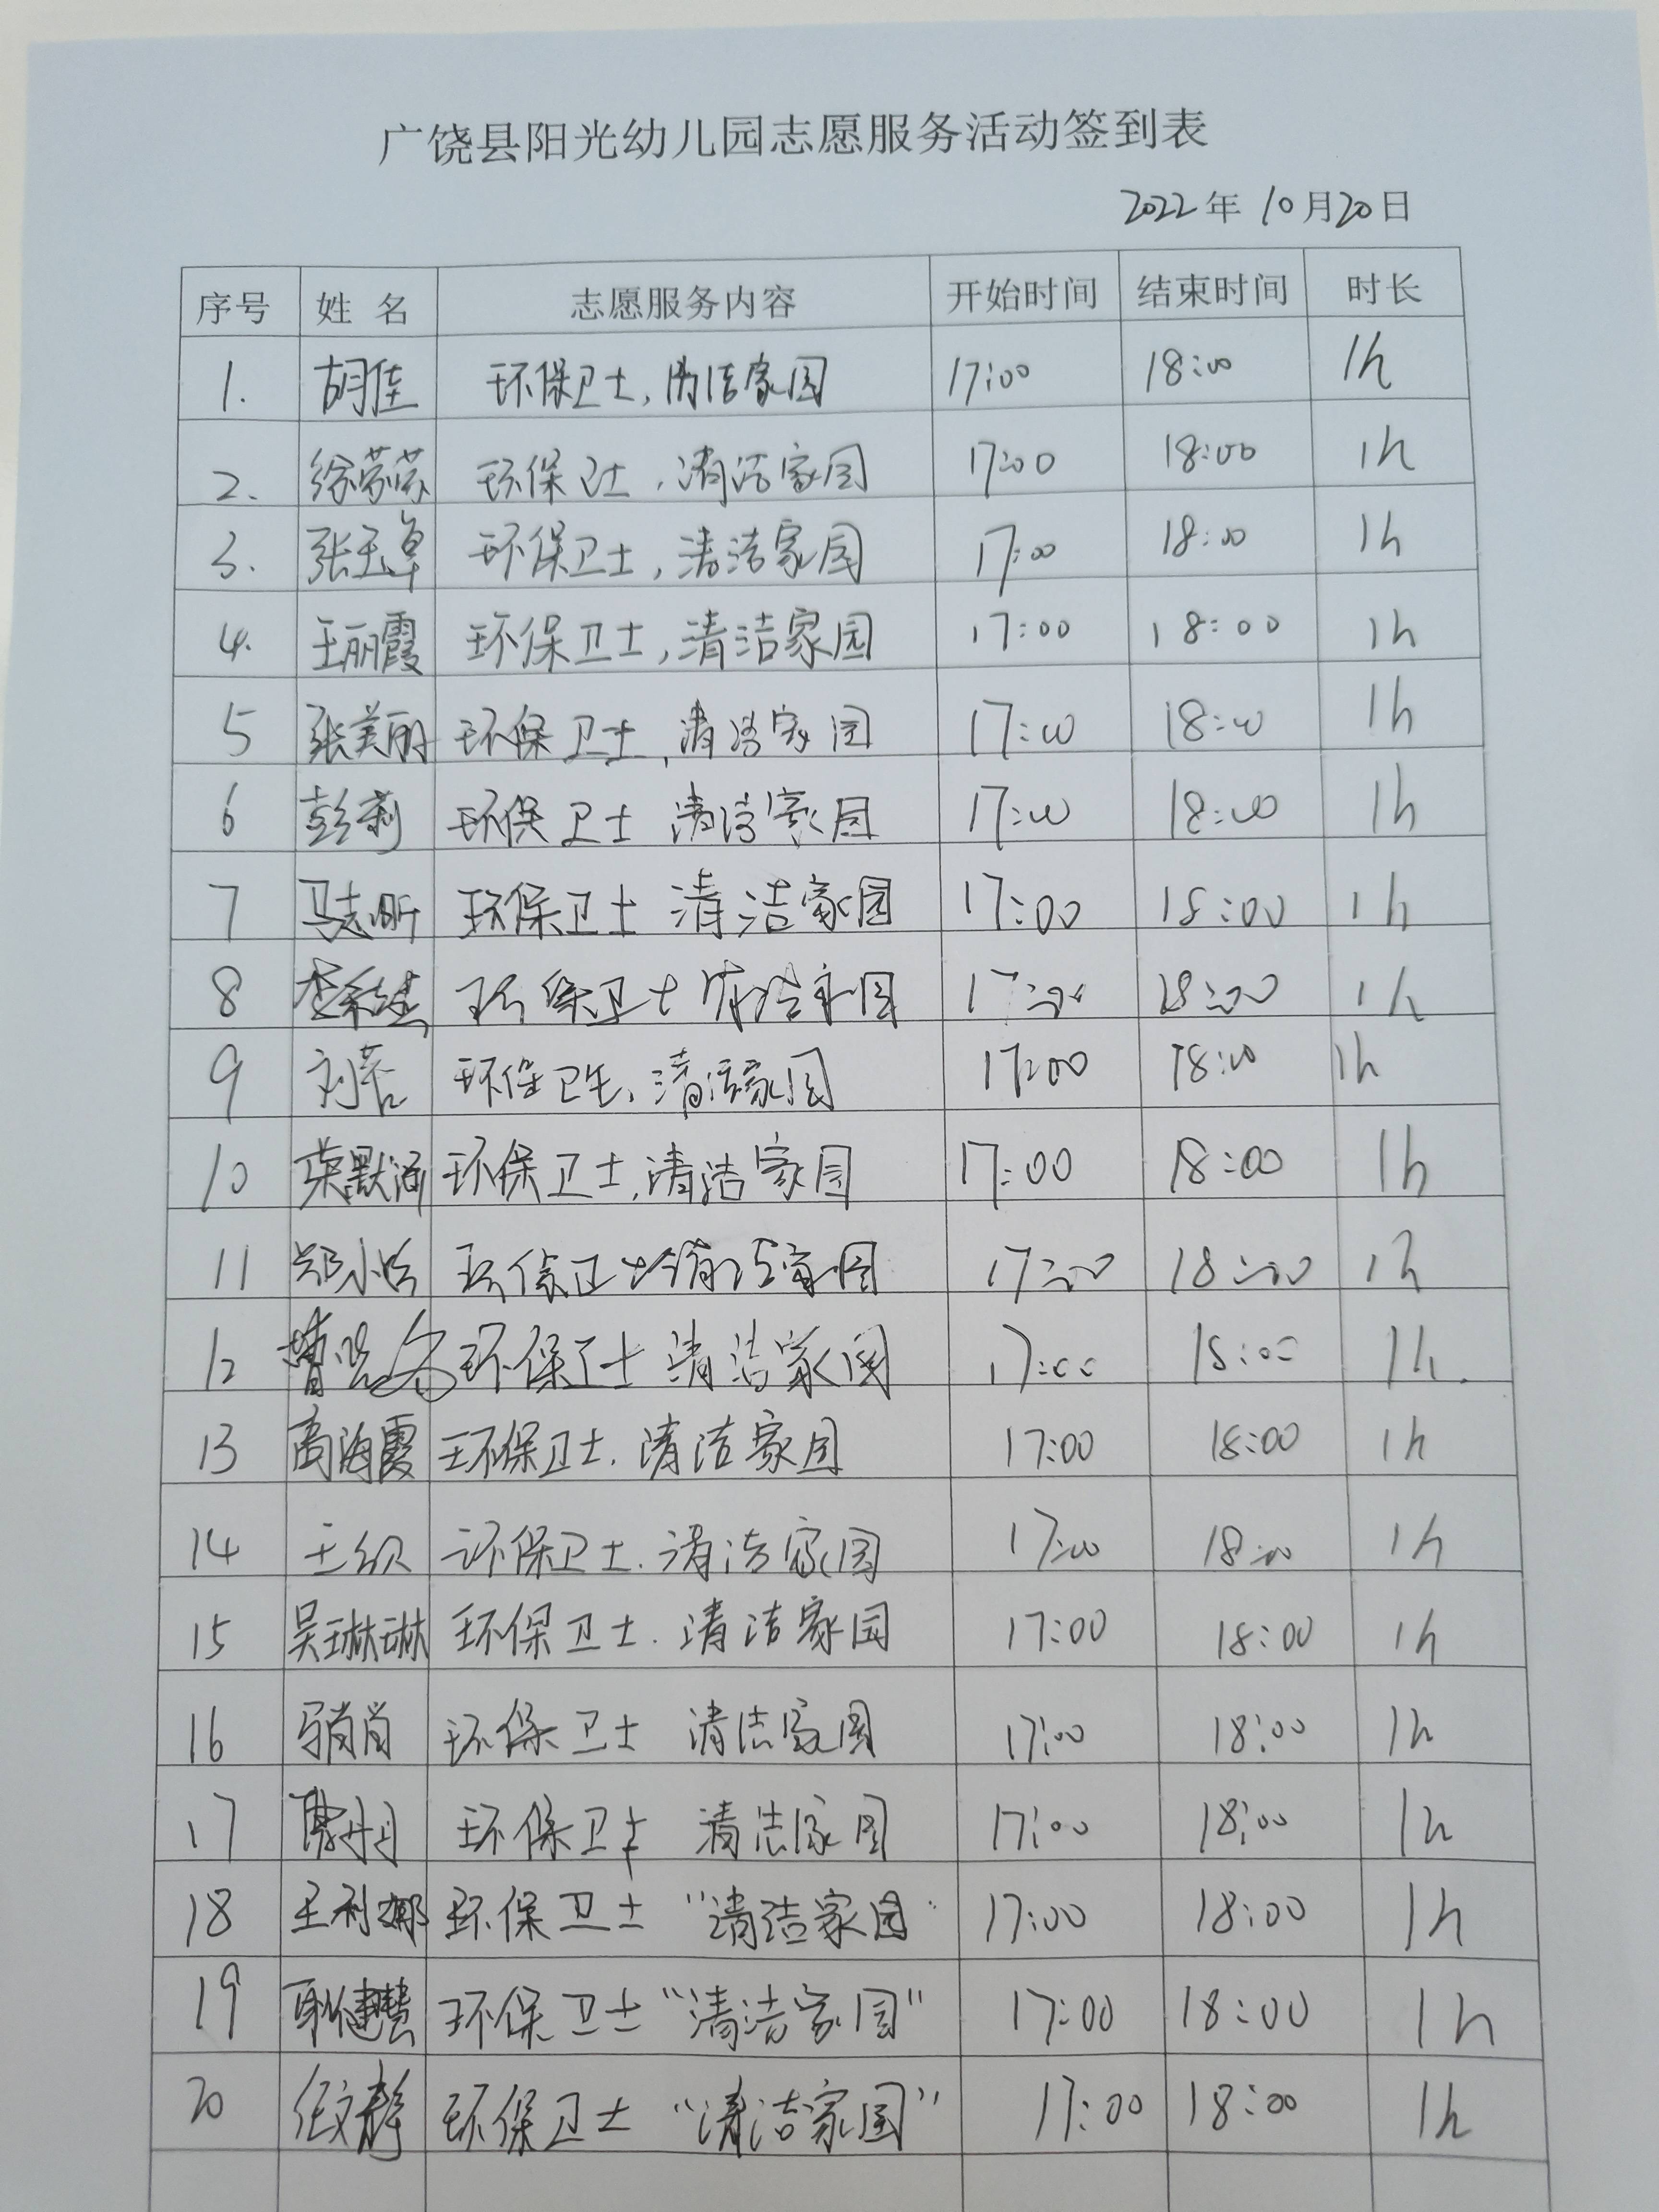 广饶县阳光幼儿园志愿服务活动签到表
2022年 10月20日
序号 姓 名 志愿服务内容 开始时间 结束时间 时长
1. 胡佳 环保卫士,清洁家园 17:00 18:00 1h
2. 徐苏苏 环保卫士,清洁家园 17:00 18:00 1h
3. 张玉卓 环保卫士,清洁家园 17:00 18:00 1h
4. 王丽霞 环保卫士,清洁家园 17:00 18:00 1h
5 张美丽 环保卫士,清洁家园 17:00 18:00 1h
6 彭莉 环保卫士 清洁家园 17:00 18:00 1h
7 马志昕 环保卫士 清洁家园 17:00 18:00 1h
8 环保卫士 清洁家园 17:00 18:00 1h
9 环保卫生,清洁家园 17:00 18:00 1h
10 荣默涵 环保卫士,清洁家园 17:00 18:00 1h
11 郑小 环保卫士 清洁家园 17:00 18:00 1h
12 环保卫士 清洁家园 17:00 18:00 1h.
13 商海霞 环保卫士.清洁家园 17:00 18:00 1h
14 王 环保卫士.清洁家园 17:00 18:00 1h
15 吴琳琳 环保卫士.清洁家园 17:00 18:00 1h
16 马肖肖 环保卫士 清洁家园 17:00 18:00 1h
17 丹丹 环保卫士 清洁家园 17:00 18:00 1h
18 王利娜 环保卫士 "清洁家园" 17:00 18:00 1h
19 耿健慧 环保卫士"清洁家园" 17:00 18:00 1h
20 任文静 环保卫士 "清洁家园" 17:00 18:00 1h